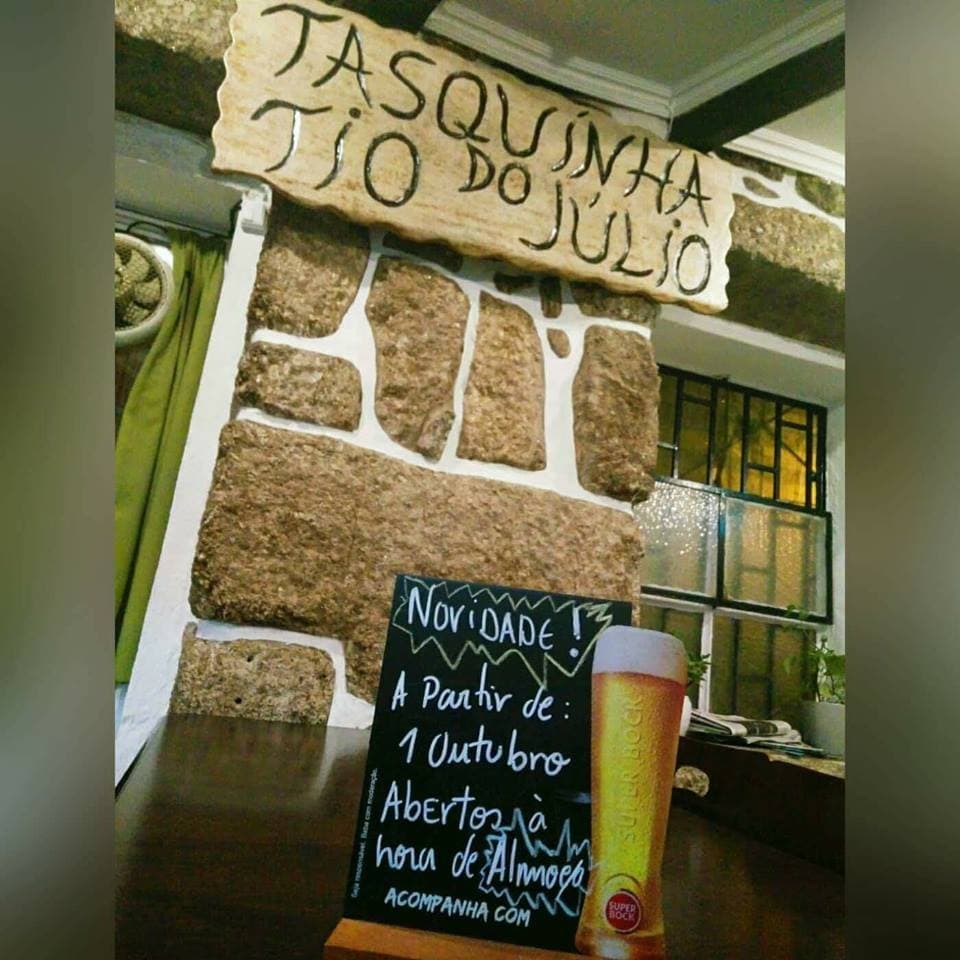 TASQUINHA
TIO DO JÚLIO
NOVIDADE!
A Partir de:
1 Outubro
Abertos à
hora de Almoço
ACOMPANHA COM
Seja responsável. Beba com moderação.
SUPER BOCK
SUPER
BOCK